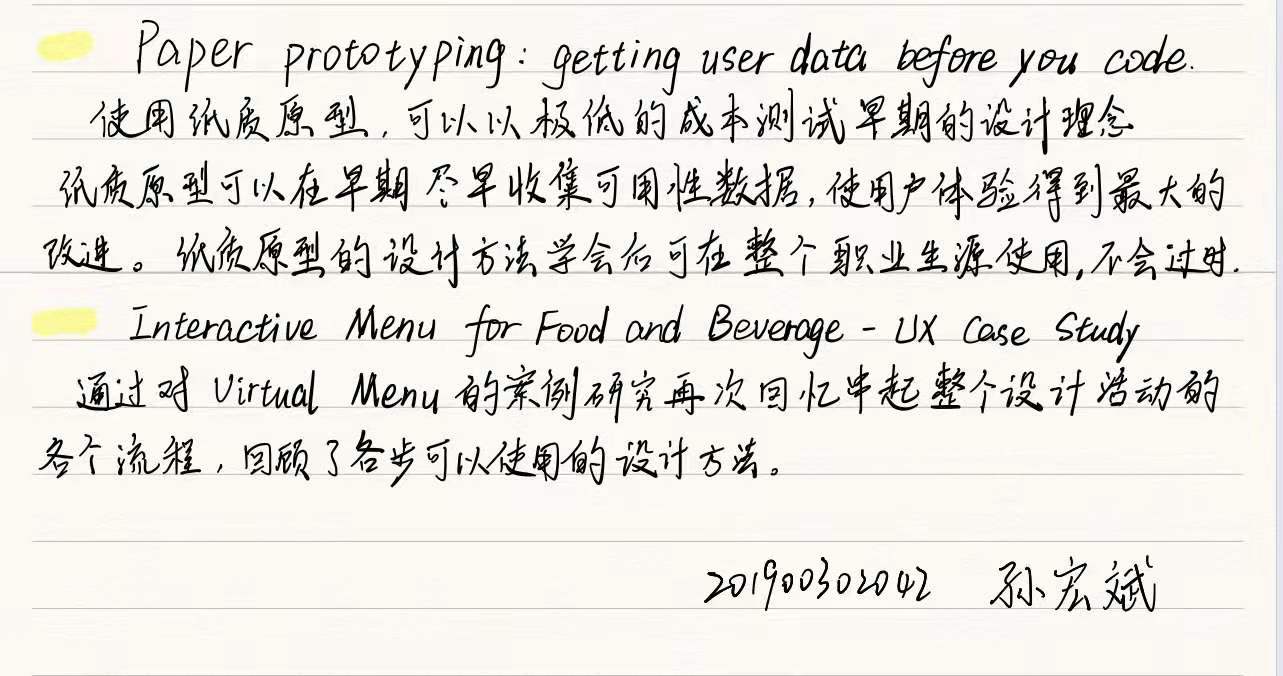 Paper prototyping: getting user data before you code.
使用纸质原型,可以以极低的成本测试早期的设计理念
纸质原型可以在早期尽早收集可用性数据,使用户体验得到最大的
改进。纸质原型的设计方法学会后可在整个职业生源使用,不会过时.
Interactive Menu for Food and Beverage - UX Case Study
通过对 Virtual Menu 的案例研究再次回忆串起整个设计活动的
各个流程,回顾了各步可以使用的设计方法。
201900302042 孙宏斌